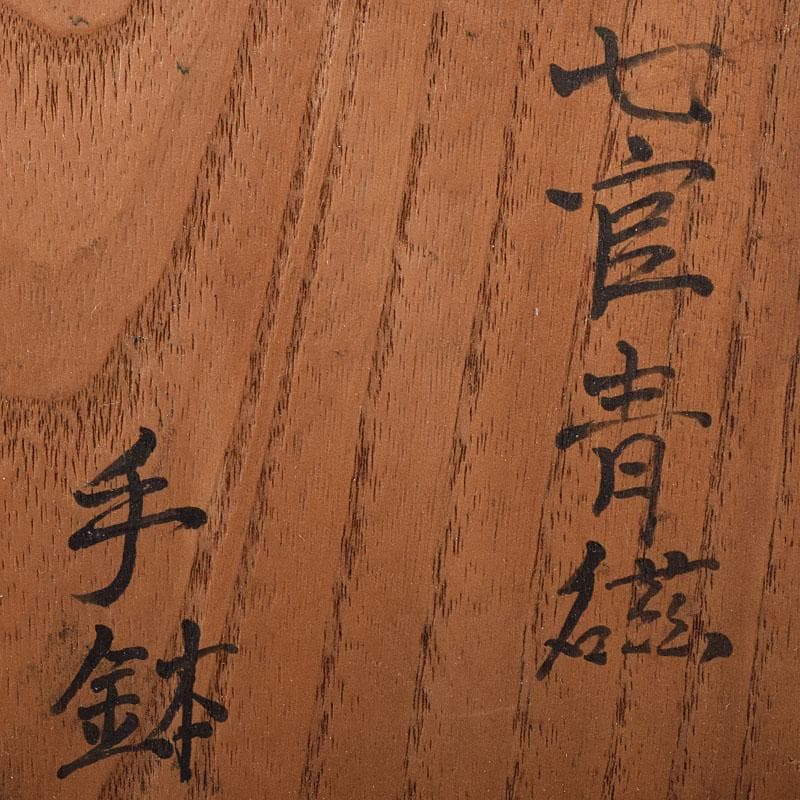 七官青磁
手鉢